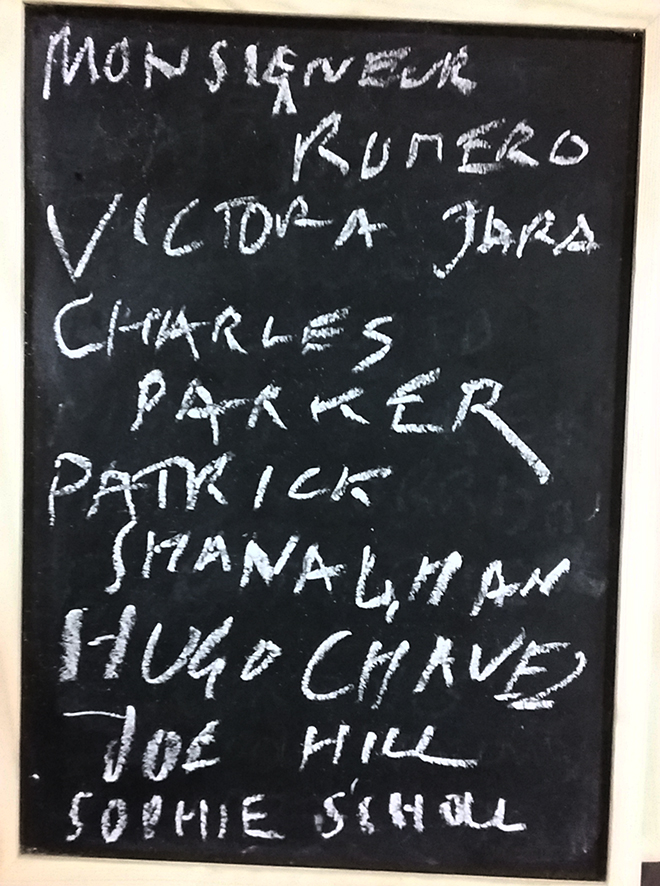 MONSIGNEUR
ROMERO
VICTORA JARA
CHARLES
PARKER
PATRICK
SHANAGHAN
HUGO CHAVEZ
JOE HILL
SOPHIE SCHOLL